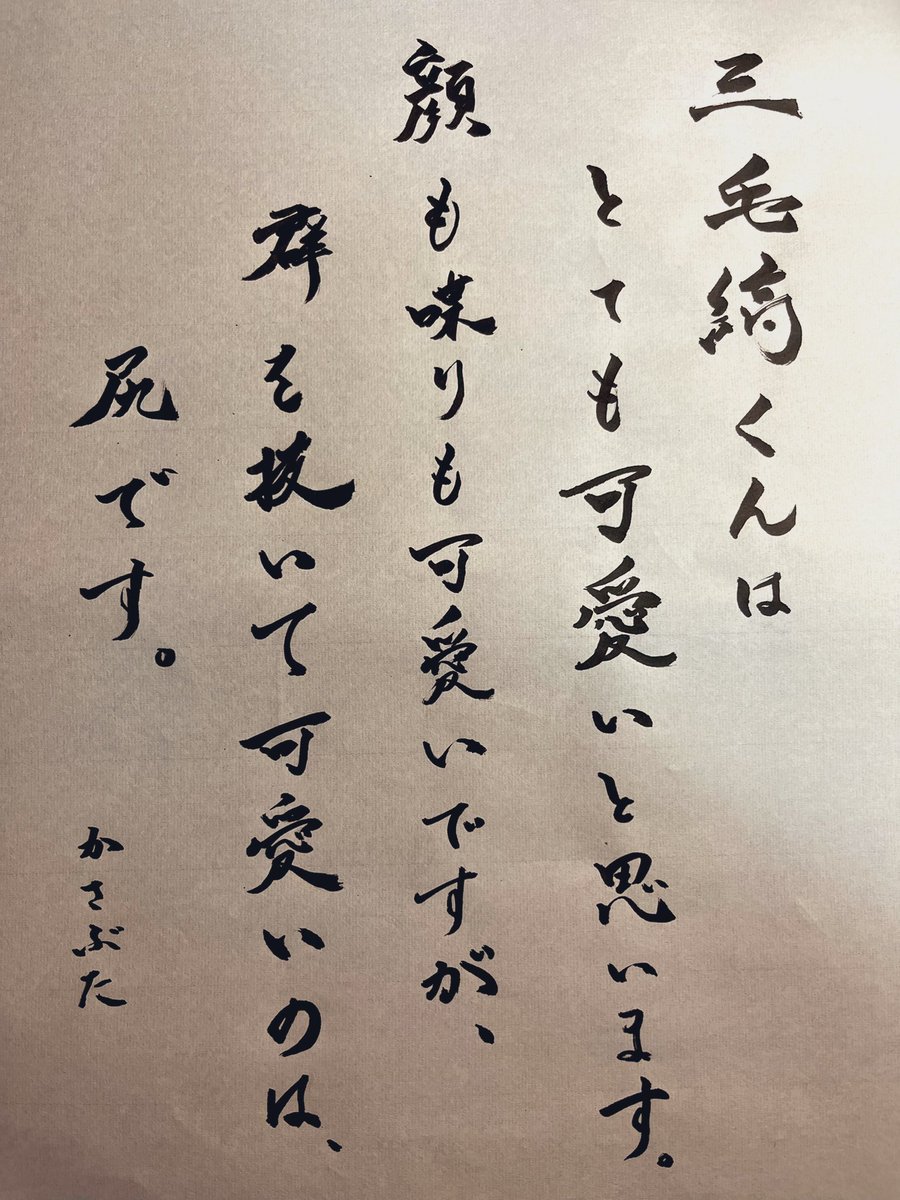 三毛縞くんは
とても可愛いと思います。
顔も喋りも可愛いですが、
群を抜いて可愛いのは、
尻です。
かさぶた